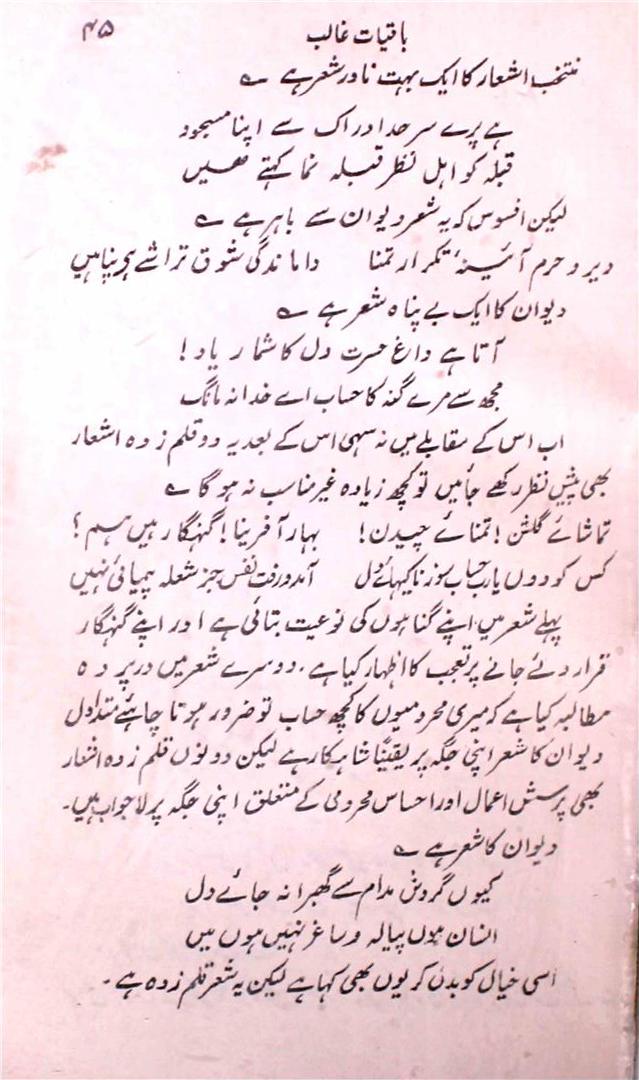 ۴۵
باقیات غالب
منتخب اشعار کا ایک بہت نادر شعر ہے ؎
ہے پرے سرحد ادراک سے اپنا مسجود
قبلہ کو اہل نظر قبلہ نما کہتے ھیں
لیکن افسوس کہ یہ شعر دیوان سے باہر ہے ؎
دیر و حرم آئینۂ تکرار تمنا واماندگی شوق تراشے ہے پناہیں
دیوان کا ایک بے پناہ شعر ہے ؎
آتا ہے داغ حسرت دل کا شمار یاد !
مجھ سے مرے گنہ کا حساب اے خدا نہ مانگ
اب اس کے مقابلے میں نہ سہی اس کے بعد یہ دو قلم زدہ اشعار
بھی پیش نظر رکھے جائیں تو کچھ زیادہ غیر مناسب نہ ہو گا ؎
تماشائے گلشن ! تمنائے چیدن ! بہار آفرینا ! گنہگار ہیں ہم ؟
کس کو دوں یارب حساب سوزناکیہائے دل آمد و رفت نفس جز شعلہ پیمائی نہیں
پہلے شعر میں اپنے گناہوں کی نوعیت بتائی ہے اور اپنے گنہگار
قرار دئے جانے پر تعجب کا اظہار کیا ہے ۔ دوسرے شعر میں در پردہ
مطالبہ کیا ہے کہ میری محرومیوں کا کچھ حساب تو ضرور ہونا چاہئے متداول
دیوان کا شعر اپنی جگہ پر یقیناً شاہکار ہے لیکن دونوں قلم زدہ اشعار
بھی پرسش اعمال اور احساس محرومی کے متعلق اپنی جگہ پر لاجواب ہیں۔
دیوان کا شعر ہے ؎
کیوں گردش مدام سے گھبرا نہ جائے دل
انسان ہوں پیالہ و ساغر نہیں ہوں میں
اسی خیال کو بدل کر یوں بھی کہا ہے لیکن یہ شعر قلم زدہ ہے ۔